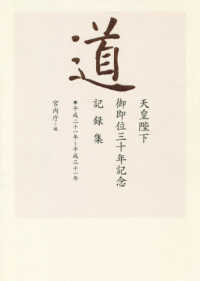 道
天皇陛下
御即位三十年記念
記録集
●平成二十一年〜平成三十一年
宮内庁・編